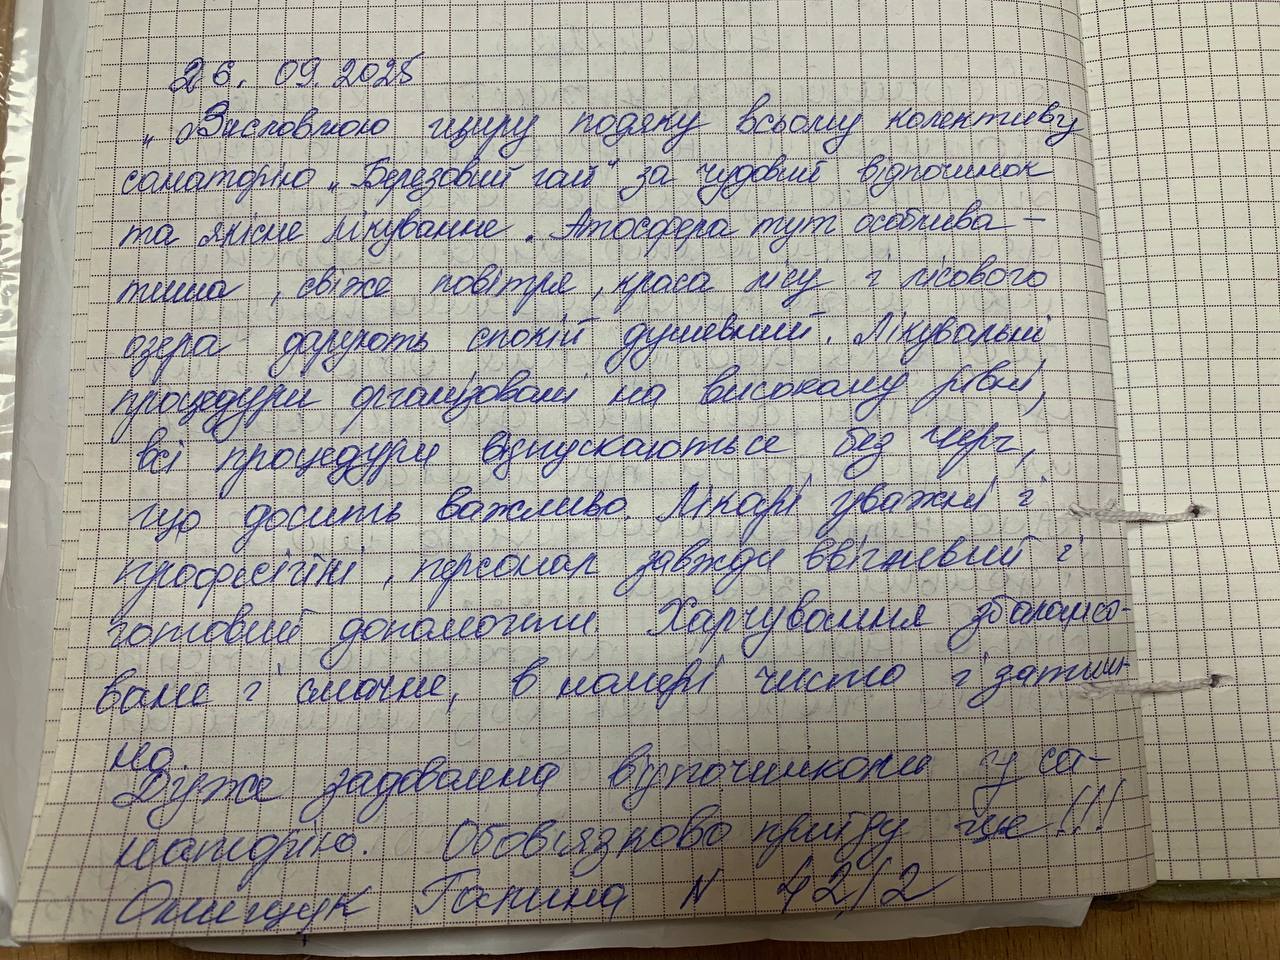 26. 09. 2025
„ Висловлюю щиру подяку всьому колективу
санаторію „Березовий гай" за чудовий відпочинок
та якісне лікування. Атосфера тут особлива –
тиша, свіже повітря, краса лісу і лісового
озера дарують спокій душевний. Лікувальні
процедури організовані на високому рівні,
всі процедури відпускаються без черг,
що досить важливо. Лікарі уважні і
професійні, персонал завжди ввічливий і
готовий допомогти. Харчування збалансо-
ване і смачне, в номері чисто і затиш-
но.
Дуже задоволена відпочинком у са-
наторію. Обов'язково приїду ще!!!
Галина N 42/2